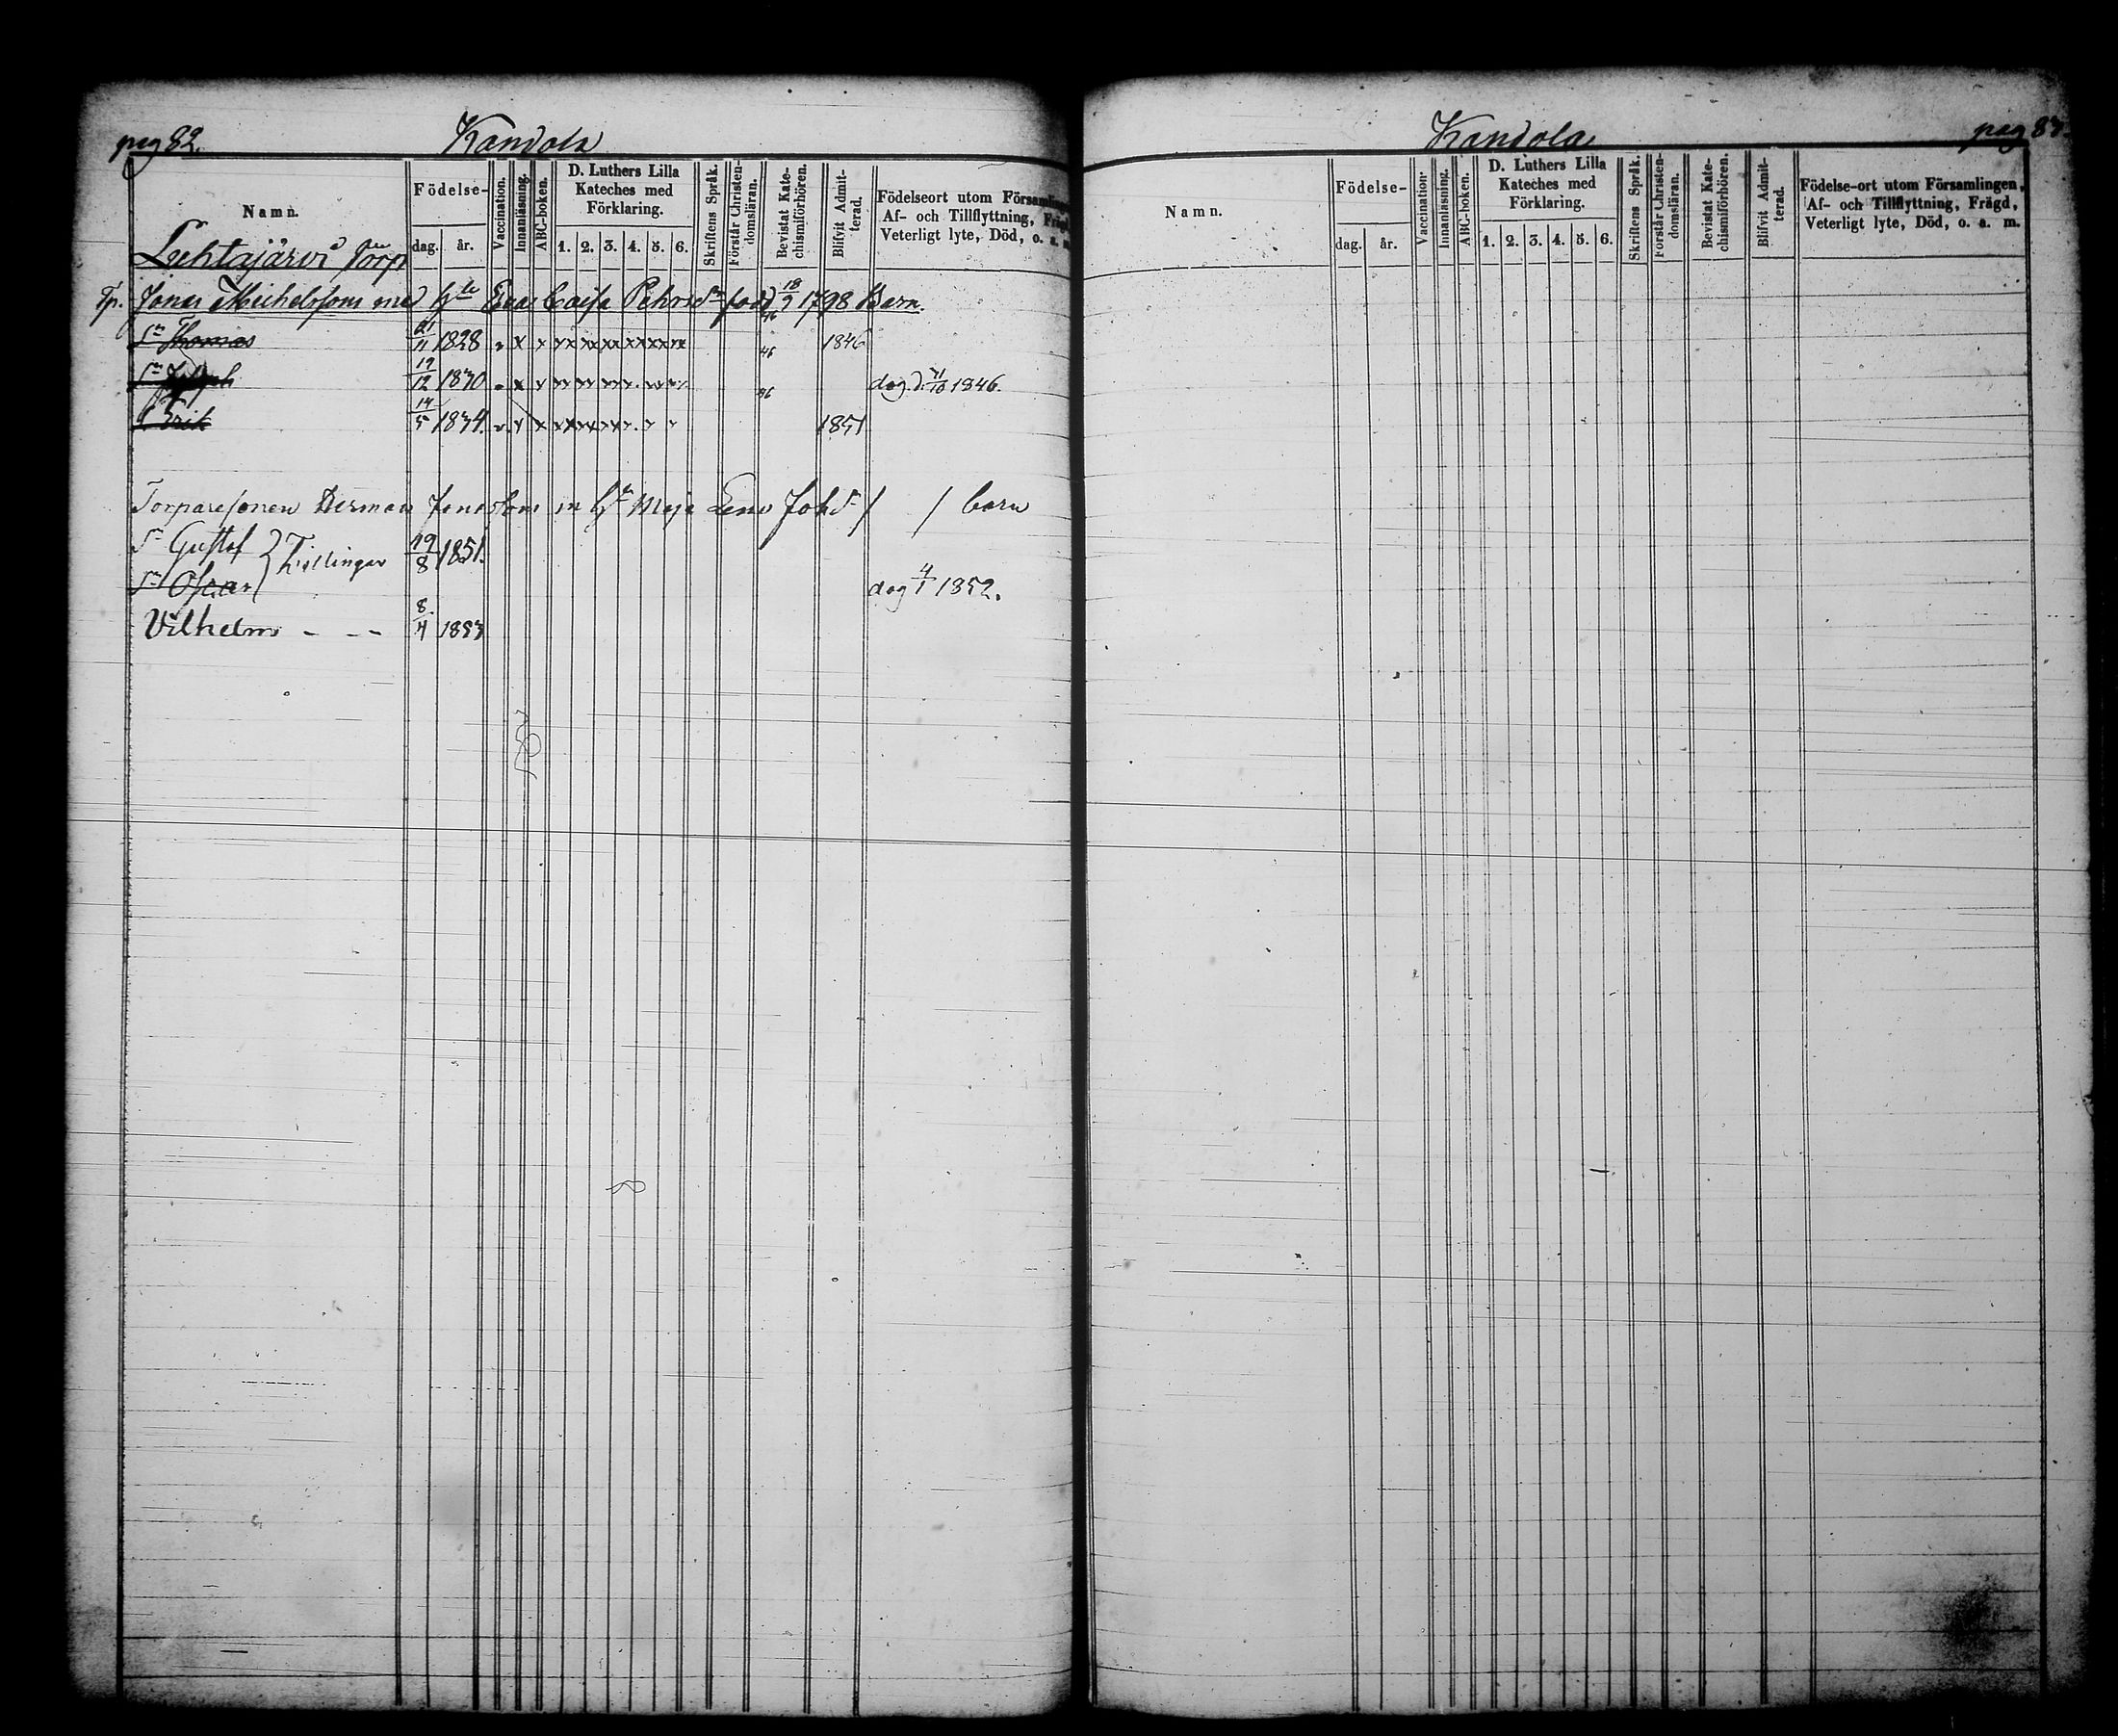 pag 82.
Kandola
Namn.
Födelse-
dag.
år.
Vaccination.
Innanläsning.
ABC-boken.
D. Luthers Lilla
Kateches med
Förklaring.
1. 2. 3. 4. 5. 6.
Skriftens Språk.
Förstår Christen-
domsläran.
Bevistat Kate-
chismiförhören.
Blifvit Admit-
terad.
Födelseort utom Församlingen
Af- och Tillflyttning, Frägd,
Veterligt lyte, Död, o. a. m.
Lehtajärvi Torp
Tp. Jonas Michelsson med h. Eva Caisa Pehrsdr född 18/9 1798 Barn.
Sn Thomas 21/11 1828 46 1846
Sn 19/12 1830 46 dog d. 1846.
S. Erik 14/5 1834. 46 1851
Torparesonen Herman Jonasson m h Maja Lena Johdr / / barn
Sn Gustaf } Tvillingar 19/8 1851.
Sn Oscar dog 4/1 1852.
Vilhelm - - - 8/4 1853
Kandola
pag 83.
Namn.
Födelse-
dag.
år.
Vaccination.
Innanläsning.
ABC-boken.
D. Luthers Lilla
Kateches med
Förklaring.
1. 2. 3. 4. 5. 6.
Skriftens Språk.
Förstår Christen-
domsläran.
Bevistat Kate-
chismiförhören.
Blifvit Admit-
terad.
Födelse-ort utom Församlingen,
Af- och Tillflyttning, Frägd,
Veterligt lyte, Död, o. a. m.